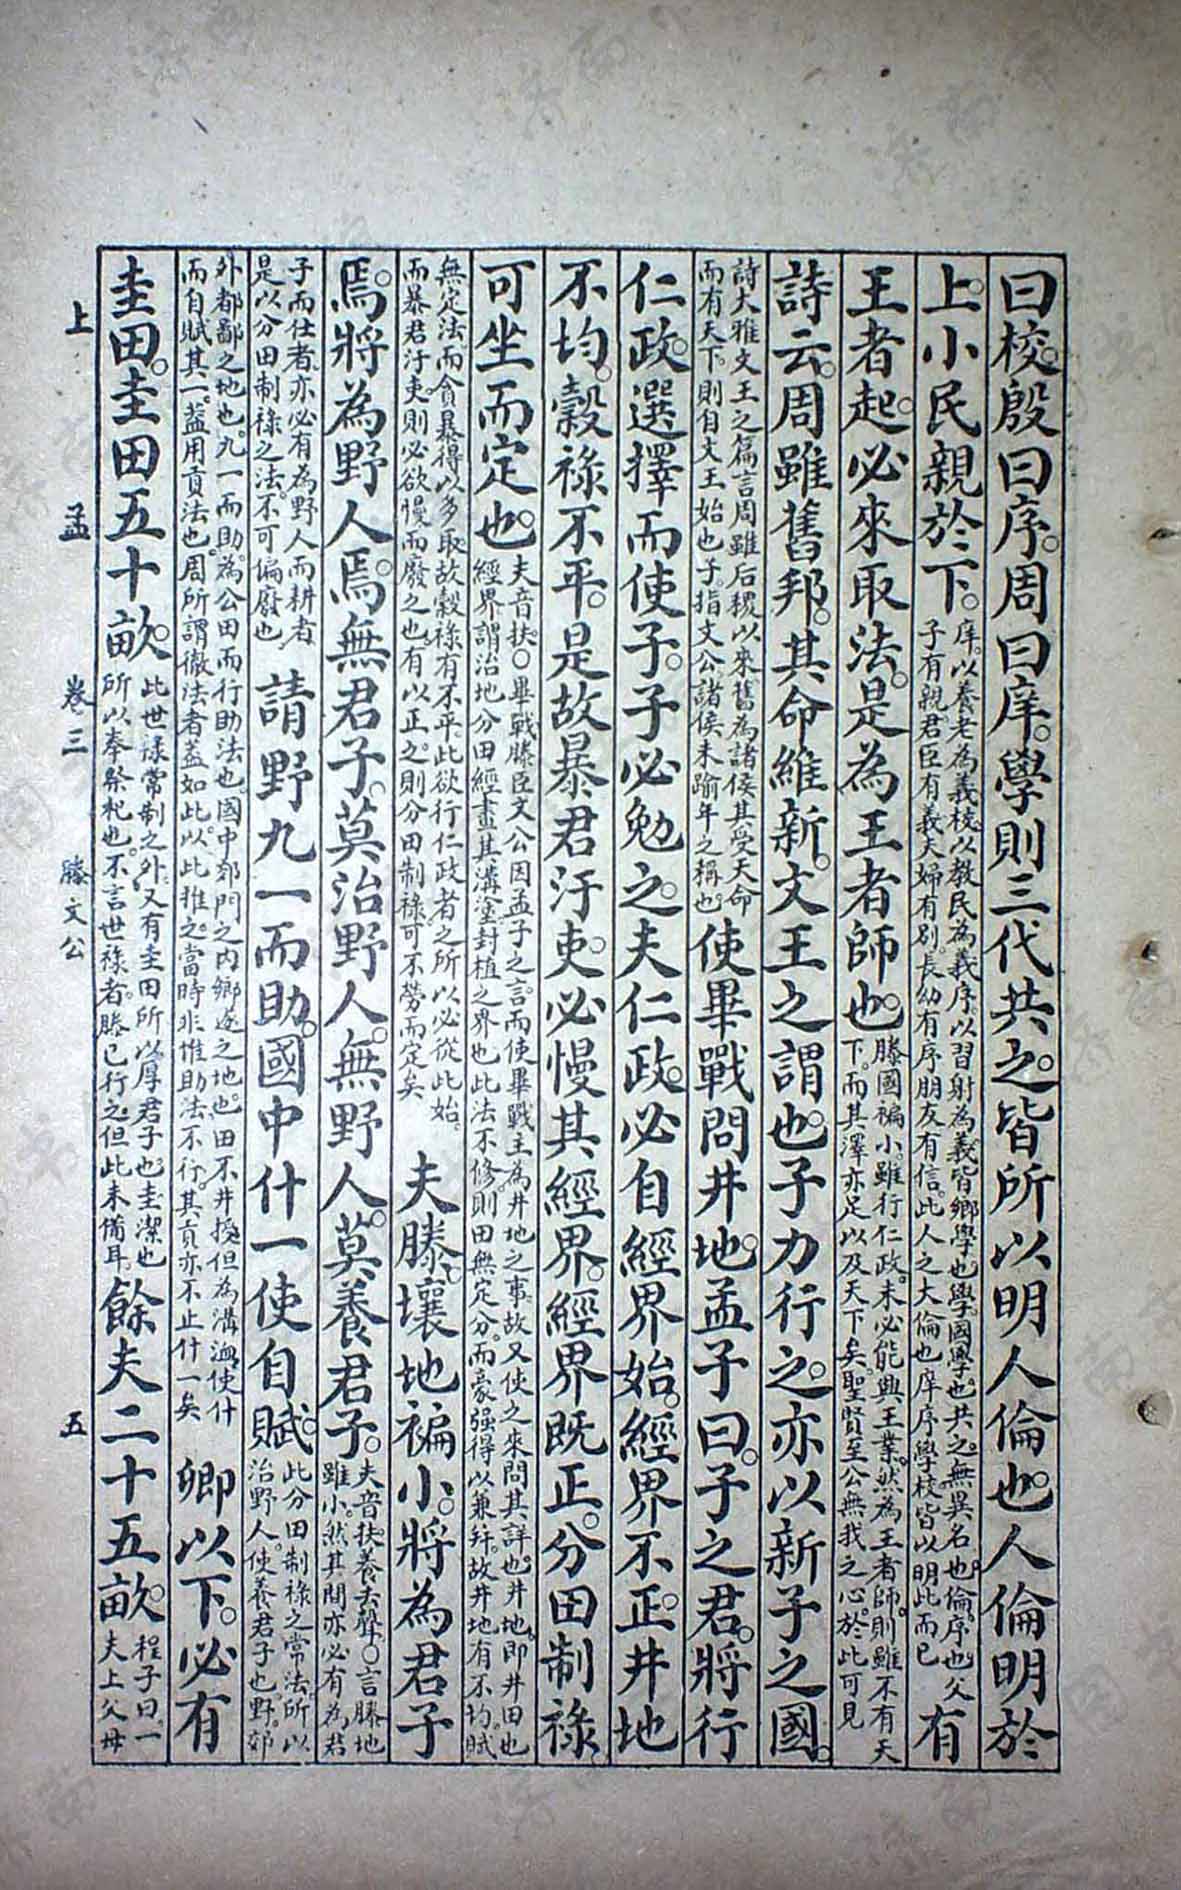 曰校。殷曰序。周曰庠。學則三代共之。皆所以明人倫也。人倫明於
上。小民親於下。庠。以養老為義。校以教民為義。序。以習射為義。皆鄉學也。學。國學也。共之。無異名也。倫。序也。父
子有親。君臣有義。夫婦有別。長幼有序。朋友有信。此人之大倫也。庠序學校。皆以明此而已
有
王者起。必來取法。是為王者師也。滕國褊小。雖行仁政。未必能興王業。然為王者師。則雖不有天
下。而其澤亦足以及天下矣。聖賢至公無我之心。於此可見
詩云。周雖舊邦。其命維新。文王之謂也。子力行之。亦以新子之國。
詩大雅文王之篇。言周雖后稷以來。舊為諸侯。其受天命
而有天下。則自文王始也。子。指文公。諸侯未踰年之稱也。
使畢戰問井地。孟子曰。子之君。將行
仁政。選擇而使子。子必勉之。夫仁政。必自經界始。經界不正。井地
不均。穀祿不平。是故暴君汙吏。必慢其經界。經界既正。分田制祿
可坐而定也。夫音扶。○畢戰。滕臣。文公因孟子之言。而使畢戰主為井地之事。故又使之來問其詳也。井地。即井田也
經界。謂治地分田。經畫其溝塗封植之界也。此法不修。則田無定分。而豪强得以兼并。故井地有不均。賦
無定法。而貪暴得以多取。故穀祿有不平。此欲行仁政者之所以必從此始。
而暴君汙吏。則必欲慢而廢之也。有以正之。則分田制祿。可不勞而定矣
夫滕。壤地褊小。將為君子
焉。將為野人焉。無君子。莫治野人。無野人。莫養君子。夫音扶。養去聲。○言滕地
雖小。然其間亦必有為君
子而仕者。亦必有為野人而耕者
是以分田制祿之法。不可偏廢也
請野九一而助。國中什一使自賦。此分田制祿之常法。所以
治野人。使養君子也。野。郊
外都鄙之地也。九一而助。為公田而行助法也。國中。郊門之內。鄉遂之地也。田不井授。但為溝洫。使什
而自賦其一。蓋用貢法也。周所謂徹法者蓋如此。以此推之。當時非惟助法不行。其貢亦不止什一矣
卿以下。必有
圭田。圭田五十畝。此世祿常制之外。又有圭田。所以厚君子也。圭。潔也
所以奉祭祀也。不言世祿者。滕已行之。但此未備耳。
餘夫二十五畝。程子曰。一
夫上父母
上 孟 卷三 滕文公 五